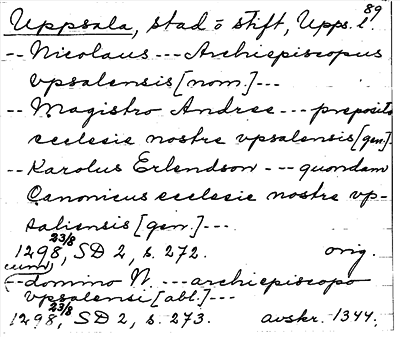 Uppsala, stad o stift, Upps. l. 89
-- Nicolaus --- Archiepiscopus
vpsalensis [nom.] ---
-- Magistro Andree --- preposito
ecclesie nostre vpsalensis [gen.] -
-- Karolus Erlendson --- quondam
Canonicus ecclesie nostre vp-
saliensis [gen.] ---
1298 23/8, SD 2, s. 272. orig.
(cum)
-- domino N. --- archiepiscopo
vpsalensi [abl.] ---
1298 23/8, SD 2, s. 273. avskr. 1344.